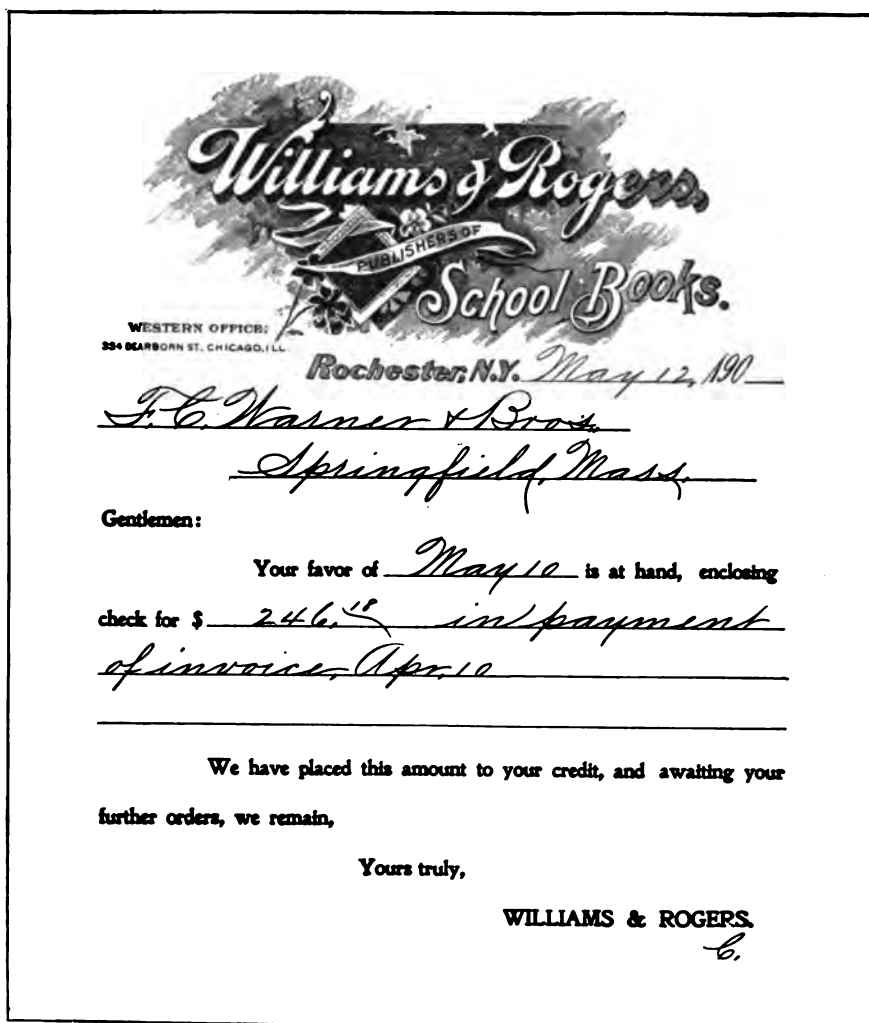 Williams & Rogers,
PUBLISHERS OF
School Books.
WESTERN OFFICE:
334 DEARBORN ST. CHICAGO, ILL.
Rochester, N.Y. May 12, 190
F. C. Warner & Bros.,
Springfield, Mass.
Gentlemen:
Your favor of May 10 is at hand, enclosing
check for $ 246.18 in payment
of invoice, Apr. 10
We have placed this amount to your credit, and awaiting your
further orders, we remain,
Yours truly,
WILLIAMS & ROGERS.
C.